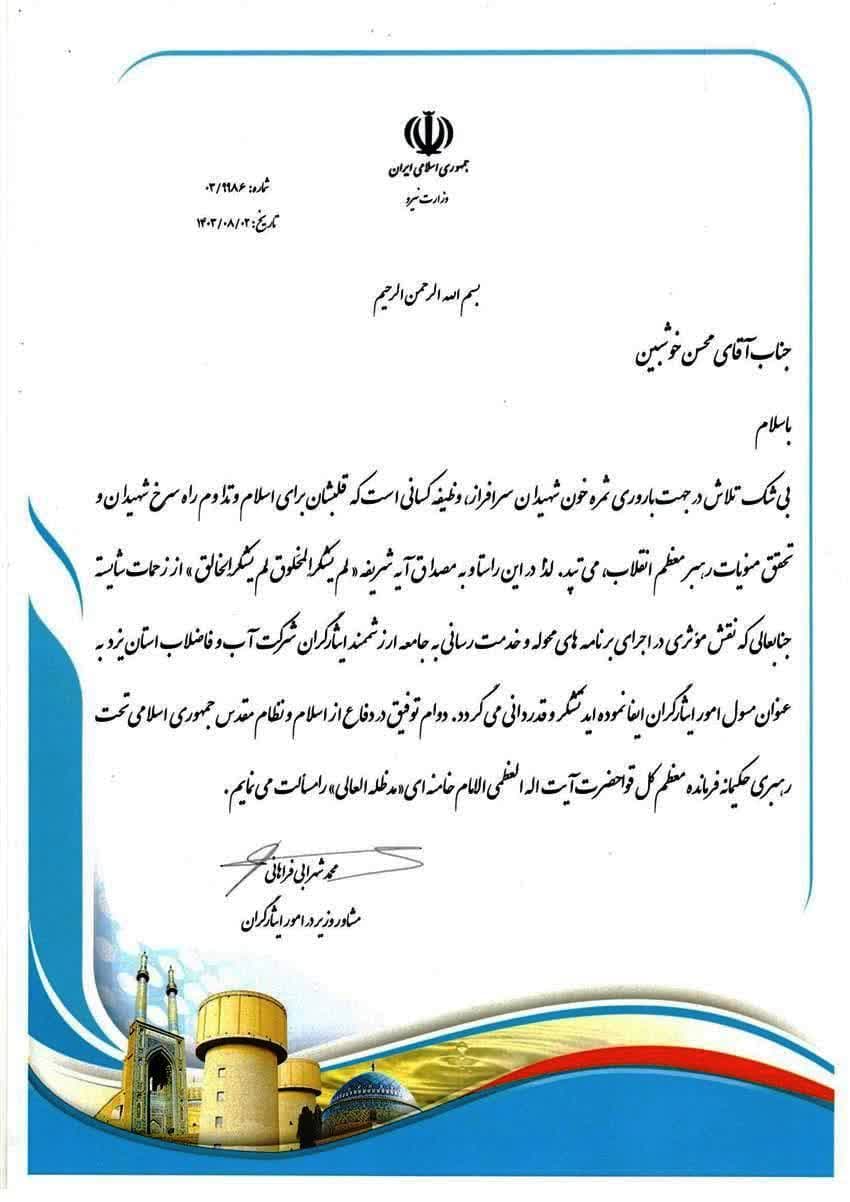 جمهوری اسلامی ایران
وزارت نیرو
شماره: ۰۳/۹۹۸۶
تاریخ: ۱۴۰۳/۰۸/۰۲
بسم الله الرحمن الرحیم
جناب آقای محسن خوشبین
باسلام
بی شک تلاش در جهت باروری ثمره خون شهیدان سرافراز، وظیفه کسانی است که قلبشان برای اسلام و تداوم راه سرخ شهیدان و
تحقق منویات رهبر معظم انقلاب، می تپد. لذا در این راستا و به مصداق آیه شریفه « لم یشکر المخلوق لم یشکر الخالق » از زحمات شایسته
جنابعالی که نقش مؤثری در اجرای برنامه های محوله و خدمت رسانی به جامعه ارزشمند ایثارگران شرکت آب و فاضلاب استان یزد به
عنوان مسول امور ایثارگران ایفا نموده اید تشکر و قدردانی می گردد. دوام توفیق در دفاع از اسلام و نظام مقدس جمهوری اسلامی تحت
رهبری حکیمانه فرمانده معظم کل قوا حضرت آیت اله العظمی الامام خامنه ای «مدظله العالی» را مسألت می نمایم.
محمد شهرابی فراهانی
مشاور وزیر در امور ایثارگران